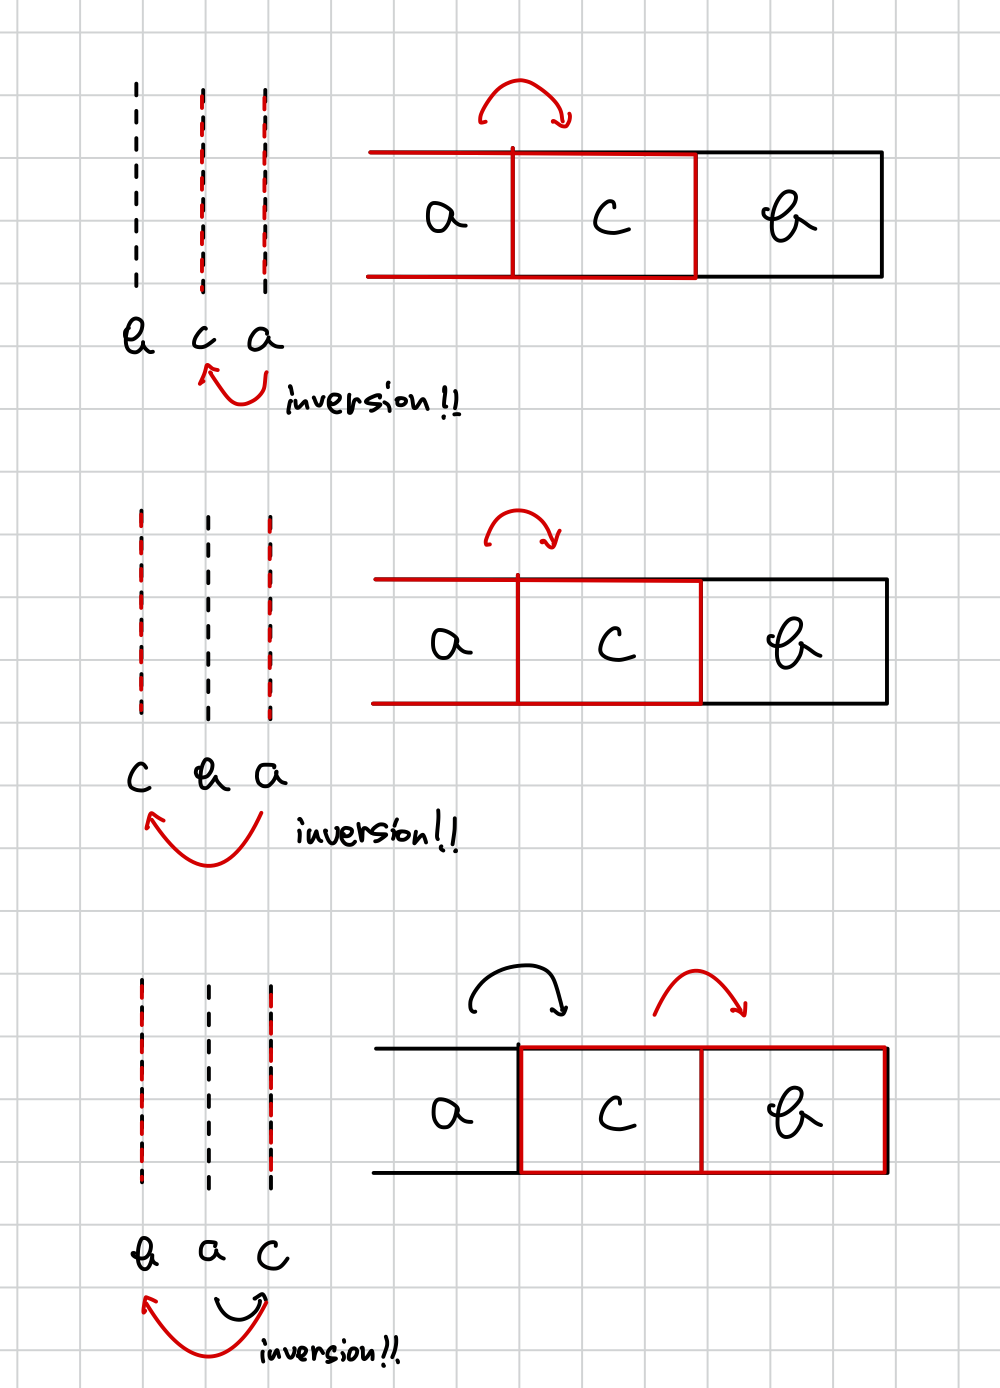 a c b
b c a
inversion!!
a c b
c b a
inversion!!
a c b
b a c
inversion!!